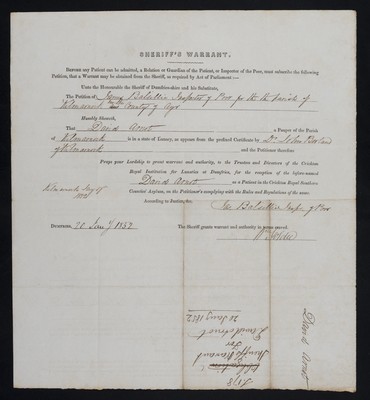 SHERIFF'S WARRANT.
BEFORE any Patient can be admitted, a Relation or Guardian of the Patient, or Inspector of the Poor, must subscribe the following
Petition, that a Warrant may be obtained from the Sheriff, as required by Act of Parliament:—
Unto the Honourable the Sheriff of Dumfries-shire and his Substitute,
The Petition of Inspector of Poor for the Parish of
Kilmarnock County of Ayr
Humbly Sheweth,
That David a Pauper of the Parish
of Kilmarnock is in a state of Lunacy, as appears from the prefixed Certificate by Dr John
of Kilmarnock and the Petitioner therefore
Prays your Lordship to grant warrant and authority, to the Trustees and Directors of the Crichton
Royal Institution for Lunatics at Dumfries, for the reception of the before-named
David as a Patient in the Crichton Royal Southern
Counties' Asylum, on the Petitioner's complying with the Rules and Regulations of the same.
Kilmarnock Jany
1852
According to Justice, &c.
Inspr of Poor
DUMFRIES, 20 Jany 1852 The Sheriff grants warrant and authority as above craved.
Sheriffs Warrant
for
David
20 Jany 1852
David